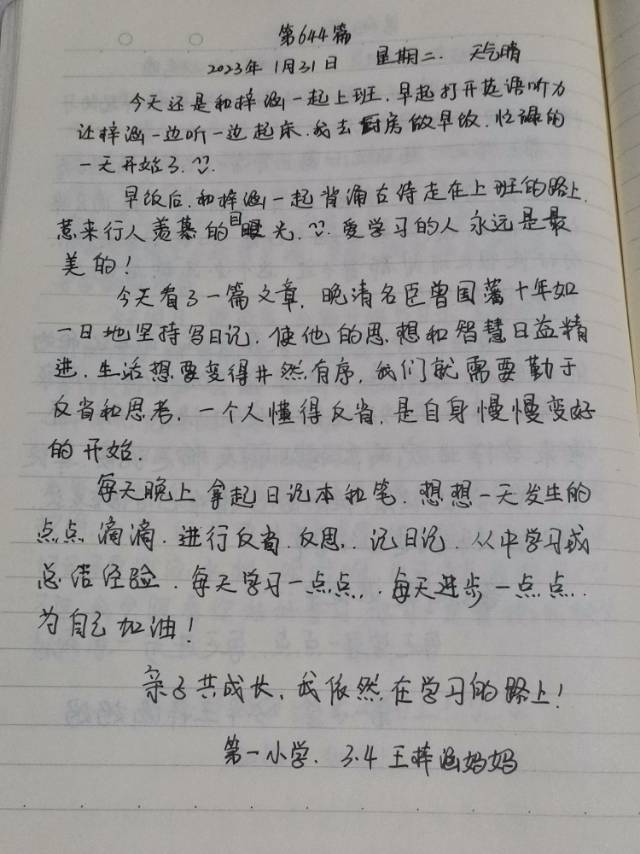 第644篇
2023年1月31日 星期二. 天气晴
今天还是和梓涵一起上班.早起打开英语听力
让梓涵一边听一边起床.我去厨房做早饭.忙碌的
一天开始了.
早饭后.和梓涵一起背诵古诗走在上班的路上.
惹来行人羡慕的目光.爱学习的人永远是最
美的!
今天看了一篇文章.晚清名臣曾国藩十年如
一日地坚持写日记.使他的思想和智慧日益精
进.生活想要变得井然有序.我们就需要勤于
反省和思考.一个人懂得反省.是自身慢慢变好
的开始.
每天晚上拿起日记本和笔.想想一天发生的
点点滴滴.进行反省.反思..记日记.从中学习或
总结经验.每天学习一点点..每天进步一点点..
为自己加油!
亲子共成长.我依然在学习的路上!
第一小学. 3.4 王梓涵妈妈